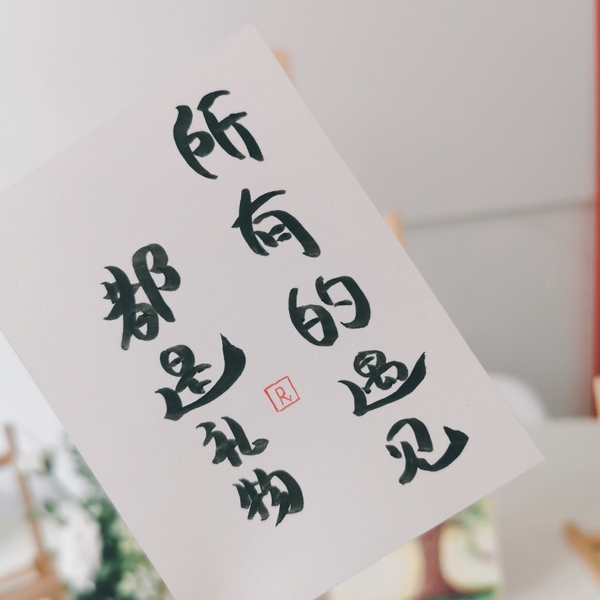 所有的遇见
都是礼物
R